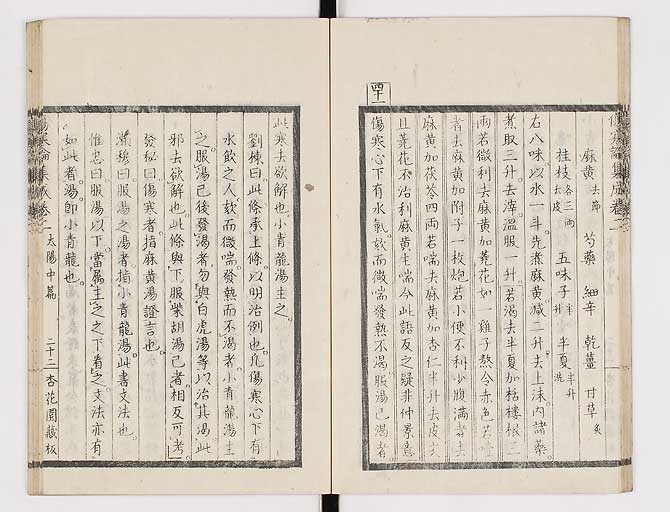 傷寒論集成卷二
麻黄去節 芍藥 細辛 乾薑 甘草炙
桂枝各三兩去皮 五味子半升 半夏半升洗
右八味以水一斗先煮麻黄減二升去上沫内諸藥
煮取三升去滓溫服一升若渴去半夏加栝樓根三
兩若微利去麻黄加蕘花如一雞子熬令赤色若噎
者去麻黄加附子一枚炮若小便不利少腹滿者去
麻黄加茯苓四兩若喘去麻黄加杏仁半升去皮尖
且蕘花不治利麻黄主喘今此語反之疑非仲景意
四十一
傷寒心下有水氣欬而微喘發熱不渴服湯已渴者
此寒去欲解也小青龍湯主之
劉棟曰此條承上條以明治例也凡傷寒心下有
水飲之人欬而微喘發熱而不渴者小青龍湯主
之服湯已後發渴者勿與白虎湯等以治其渴此
邪去欲解也此條與下服柴胡湯已者相反可考
發秘曰傷寒者指麻黄湯證言也
瀨穆曰服湯之湯者指小青龍湯此書文法也
惟忠曰服湯以下當屬主之之下看之文法亦有
如此者湯卽小青龍也
傷寒論集成卷二 太陽中篇 二十二 杏花園藏板